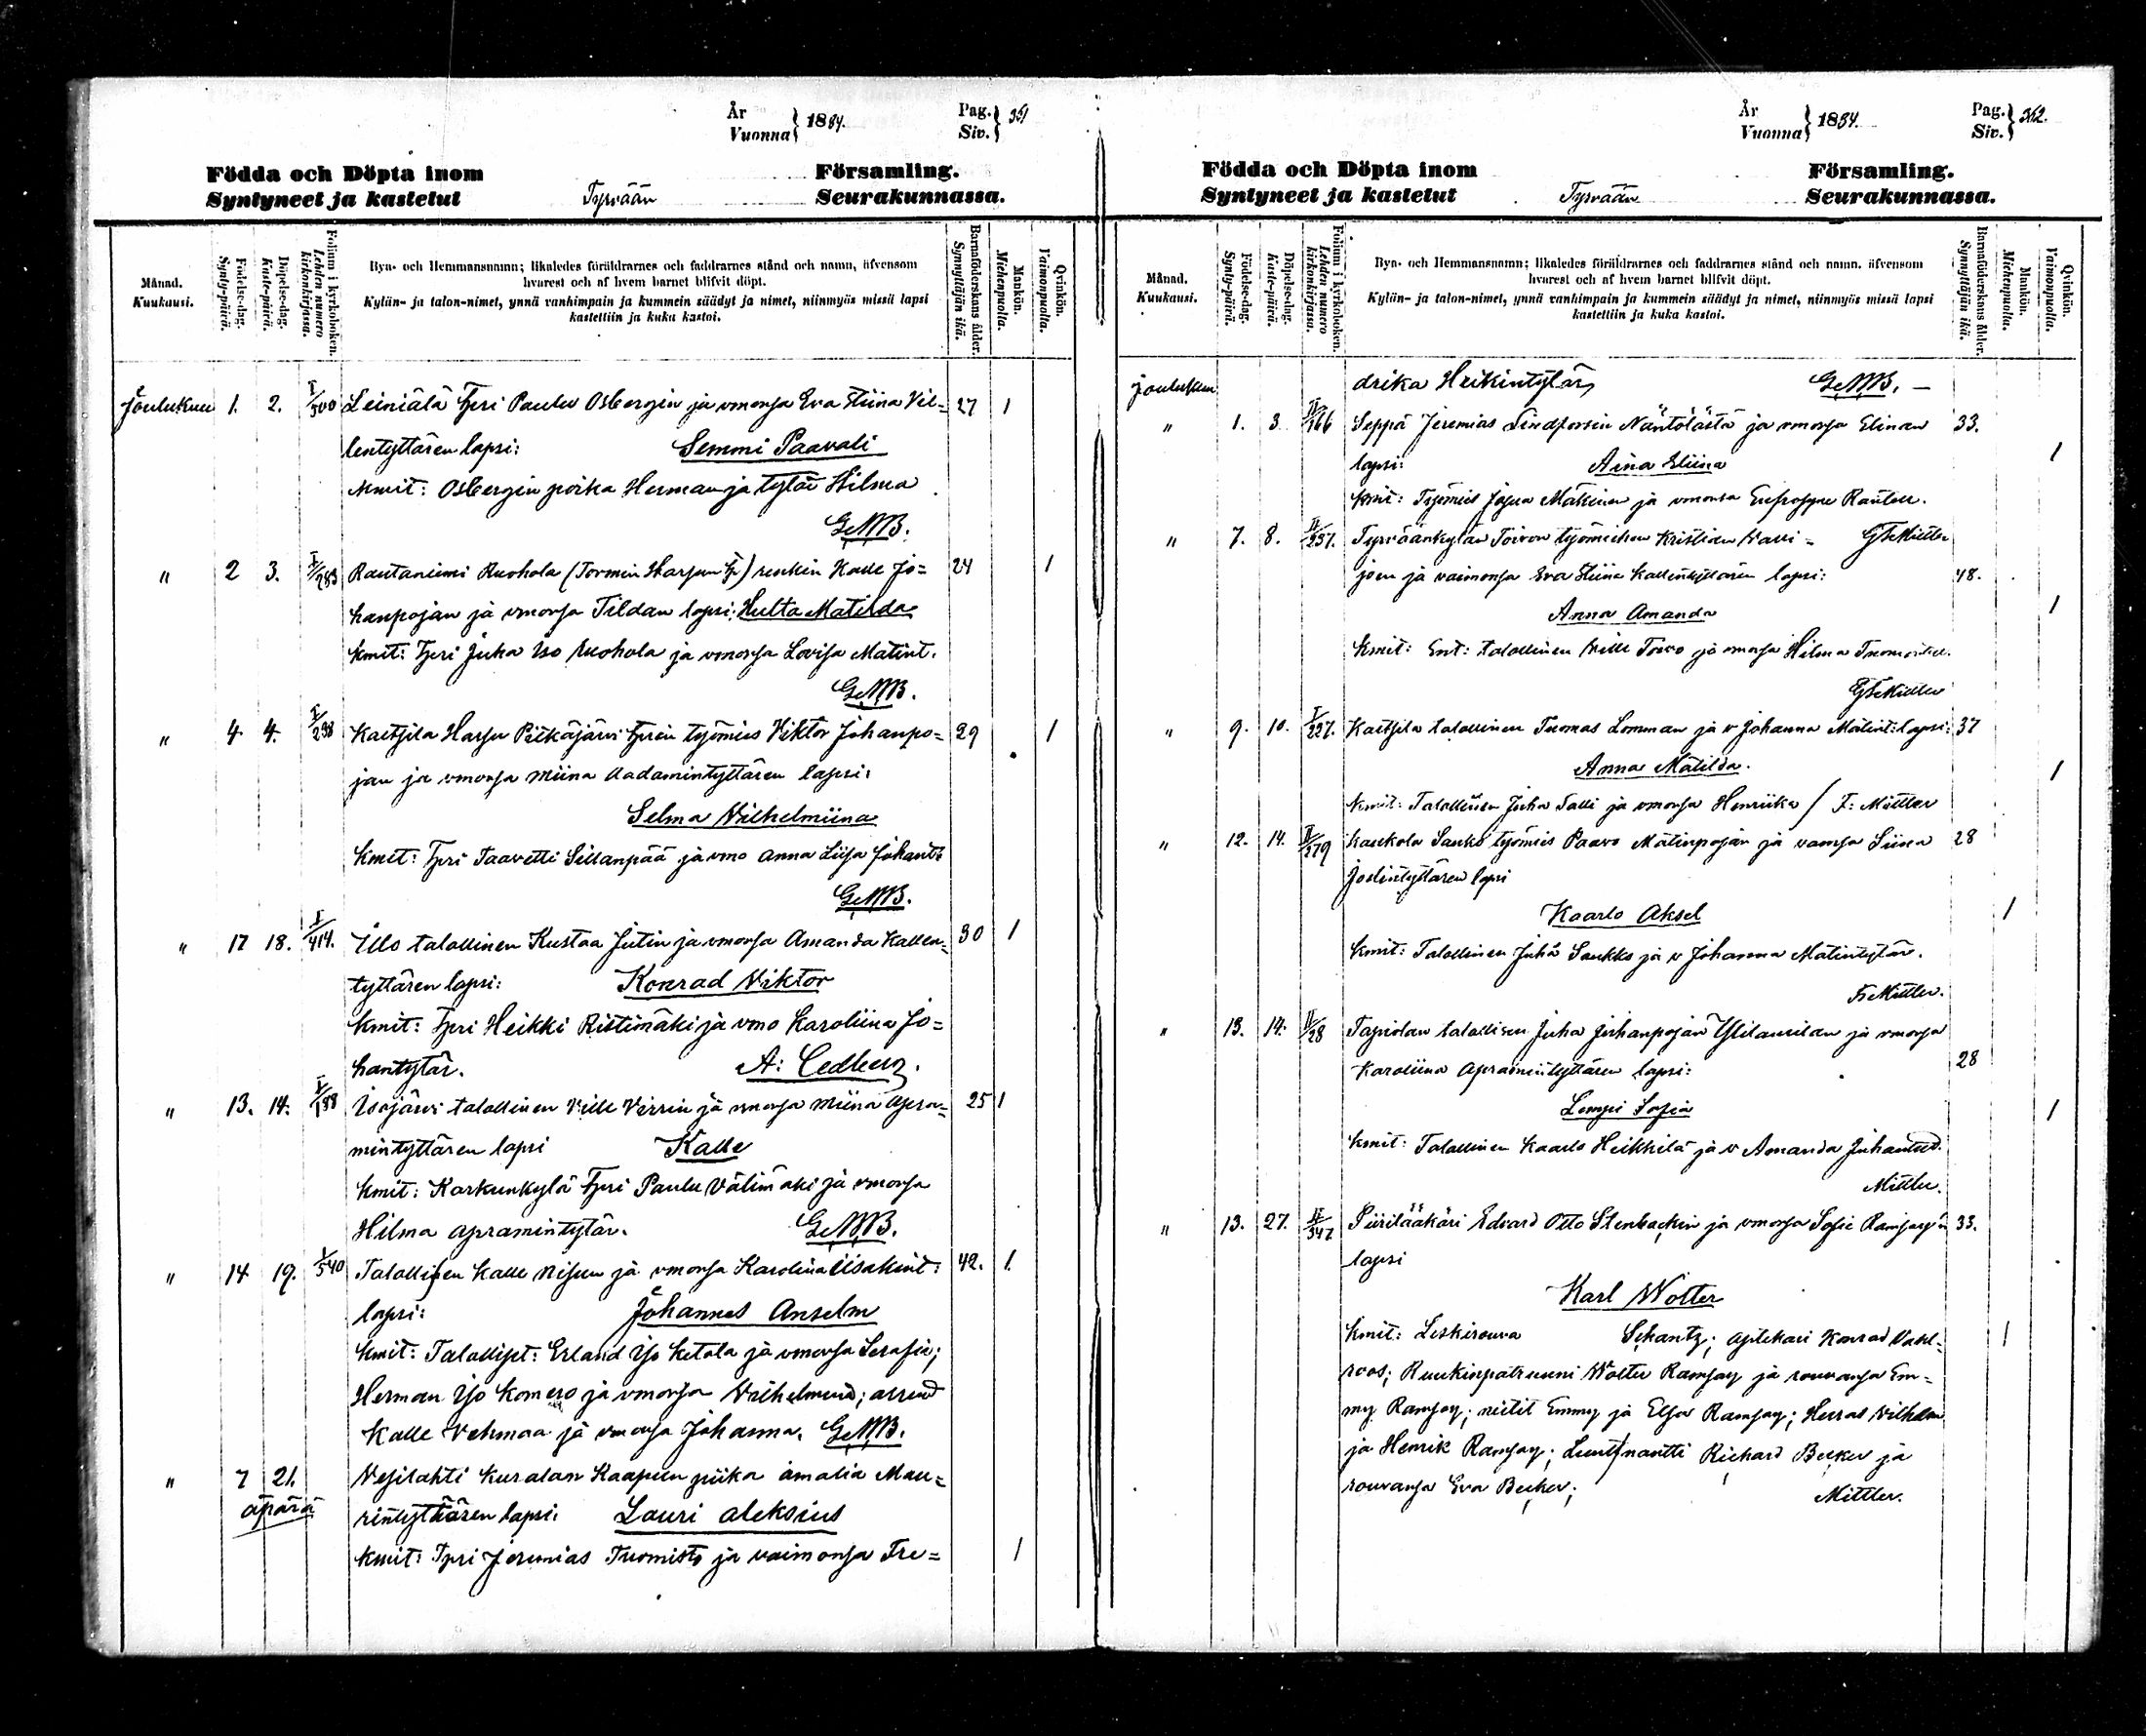 År
Vuonna } 1884.
Pag.
Siv. } 361
Födda och Döpta inom Församling.
Syntyneet ja kastetut Tyrvään Seurakunnassa.
Månad.
Kuukausi.
Födelse-dag.
Synty-päivä.
Döpelse-dag.
Kaste-päivä.
Folium i kyrkoboken.
Lehden numero kirkonkirjassa.
Byn- och Hemmansnamn; likaledes föräldrarnes och faddrarnes stånd och namn, äfvensom
hvarest och af hvem barnet blifvit döpt.
Kylän- ja talon-nimet, ynnä vanhimpain ja kummein säädyt ja nimet, niinmyös missä lapsi
kastettiin ja kuka kastoi.
Barnaföderskans ålder.
Synnyttäjän ikä.
Mankön.
Miehenpuolta.
Qvinkön.
Vaimonpuolta.
Joulukuu 1. 2. I/500 Leiniälä Tpri Paulu Osbergin ja vmonsa Eva Stiina Vil= 27 1
lentyttären lapsi: Semmi Paavali
kmit: Osbergin poika Herman ja tytär Hilma
GeMB.
" 2 3. I/283 Rautaniemi Ruohola (Tormin Harjun Tp) renkin Kalle Jo= 24 1
hanpojan ja vmonsa Tildan lapsi: Hulta Matilda
kmit: Tpri Juha Iso Ruohola ja vmonsa Lovisa Matint.
GeMB.
" 4. 4. I/238 Kaltsila Harju Pitkäjärvi Tprin työmies Viktor Johanpo= 29 1
jan ja vmonsa Miina Aadamintyttären lapsi:
Selma Vilhelmiina
kmit: Tpri Taavetti Sillanpää ja vmo Anna Liisa Johant:
GeMB.
" 17 18. I/414. Illo talollinen Kustaa Jutin ja vmonsa Amanda Kallen= 30 1
tyttären lapsi: Konrad Viktor
kmit: Tpri Heikki Ristimäki ja vmo Karoliina Jo=
hantytär. A: Cedberg.
" 13. 14. I/188 Isojärvi talollinen Ville Virrin ja vmonsa Miina Apra= 25 1
mintyttären lapsi Kalle
kmit: Karkunkylä Tpri Paulu Välimäki ja vmonsa
Hilma Apramintytär. GeMB.
" 14 19. I/540 Talollisen Kalle Nisun ja vmonsa Karolina Iisakint: 42. 1.
lapsi: Johannes Anselm
kmit: Talolliset: Erland Iso Ketola ja vmonsa Serafia;
Herman Iso Komero ja vmonsa Vilhelmina; arrend
Kalle Vehmaa ja vmonsa Johanna. GeMB.
" 7 21. Vesilahti Kuralan Kaapun piika Amalia Mau=
äpärä rintyttären lapsi: Lauri Aleksius
kmit: Tpri Jeremias Tuomisto ja vaimonsa Fre= 1
År
Vuonna } 1884.
Pag.
Siv. } 362.
Födda och Döpta inom Församling.
Syntyneet ja kastetut Tyrvään Seurakunnassa.
Månad.
Kuukausi.
Födelse-dag.
Synty-päivä.
Döpelse-dag.
Kaste-päivä.
Folium i kyrkoboken.
Lehden numero kirkonkirjassa.
Byn- och Hemmansnamn; likaledes föräldrarnes och faddrarnes stånd och namn, äfvensom
hvarest och af hvem barnet blifvit döpt.
Kylän- ja talon-nimet, ynnä vanhimpain ja kummein säädyt ja nimet, niinmyös missä lapsi
kastettiin ja kuka kastoi.
Barnaföderskans ålder.
Synnyttäjän ikä.
Mankön.
Miehenpuolta.
Qvinkön.
Vaimonpuolta.
Joulukuu drika Heikintytär, GeMB. —
" 1. 3 II/166 Seppä Jeremias Lindforsin Näntölästä ja vmonsa Elinan 33.
lapsi: Aina Eliina 1
kmit: Työmies Josua Mäkinen ja vmonsa Eufrosyne
" 7. 8. II/257. Tyrväänkylän Toivon työmiehen Kristian Vaili= GF Mittler
joen ja vaimonsa Eva Stiina Kallentyttären lapsi: 48.
Anna Amanda 1
kmit: Ent: talollinen Ville Toivo ja vmonsa Hilma
GF Mittler
" 9. 10. I/227. Kaltsila talollinen Tuomas Lomman ja v Johanna Matint: lapsi: 37
Anna Matilda. 1
kmit: Talollinen Juha Talli ja vmonsa Henriika / F: Mittler
" 12. 14. II/279 Kaukola Saukko työmies Paavo Matinpojan ja vamsa Liina 28
Joelintyttären lapsi
Kaarlo Aksel 1
kmit: Talollinen Juha Saukko ja v Johanna Matintytär.
F Mittler.
" 13. 14. II/28 Tapiolan talollisen Juha Juhanpojan Ylitanilan ja vmonsa
Karoliina Apramintyttären lapsi: 28
Lempi Sofia 1
kmit: Talollinen Kaarlo Heikkilä ja v Amanda
Mittler.
" 13. 27. II/342 Piirilääkäri Edvard Otto Stenbäckin ja vmonsa Sofie Ramsay'n 33.
lapsi
Karl Wolter
kmit: Leskirouva Schantz; aptekari Konrad Vahl= 1
roos; Ruukinpatruuni Wolter Ramsay ja rouvansa Em=
my Ramsay; neitit Emmy ja Elsa Ramsay; Herrat Vilhelm
ja Henrik Ramsay; Luutnantti Richard Becker ja
rouvansa Eva Becker; Mittler.